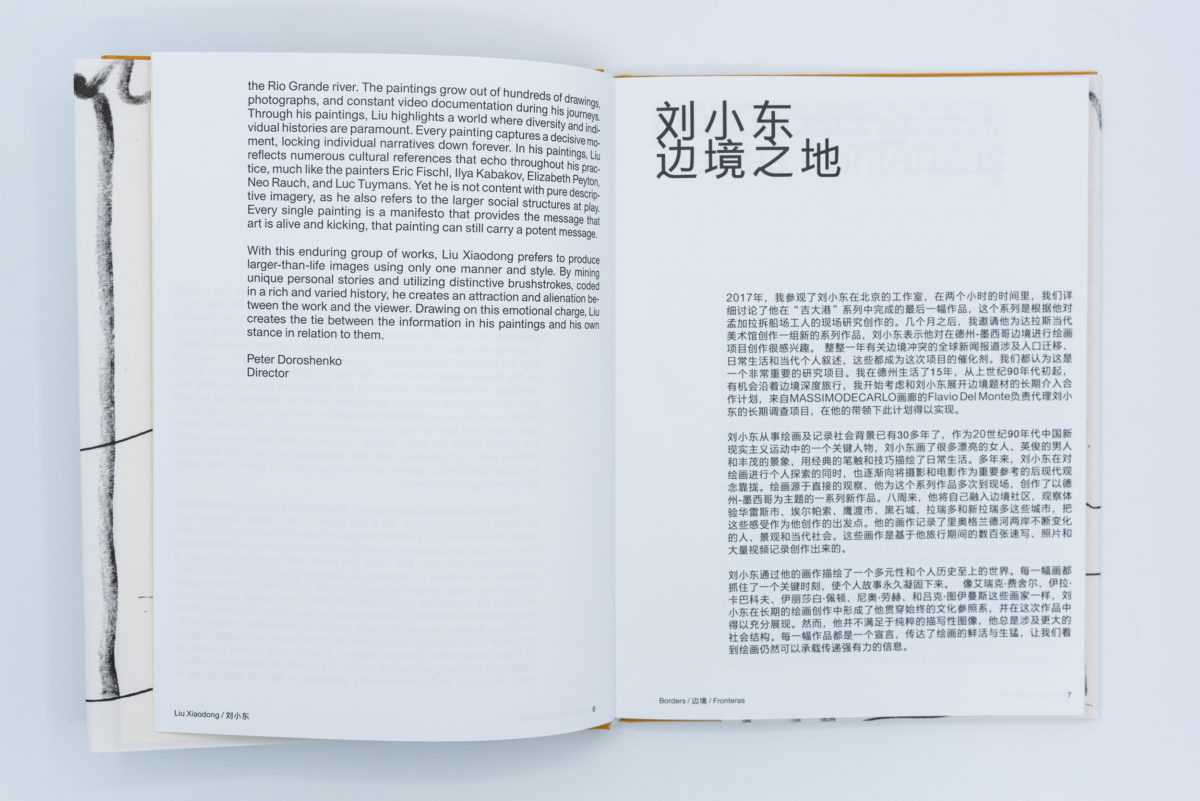 the Rio Grande river. The paintings grow out of hundreds of drawings,
photographs, and constant video documentation during his journeys.
Through his paintings, Liu highlights a world where diversity and indi-
vidual histories are paramount. Every painting captures a decisive mo-
ment, locking individual narratives down forever. In his paintings, Liu
reflects numerous cultural references that echo throughout his prac-
tice, much like the painters Eric Fischl, Ilya Kabakov, Elizabeth Peyton,
Neo Rauch, and Luc Tuymans. Yet he is not content with pure descrip-
tive imagery, as he also refers to the larger social structures at play.
Every single painting is a manifesto that provides the message that
art is alive and kicking, that painting can still carry a potent message.
With this enduring group of works, Liu Xiaodong prefers to produce
larger-than-life images using only one manner and style. By mining
unique personal stories and utilizing distinctive brushstrokes, coded
in a rich and varied history, he creates an attraction and alienation be-
tween the work and the viewer. Drawing on this emotional charge, Liu
creates the tie between the information in his paintings and his own
stance in relation to them.
Peter Doroshenko
Director
Liu Xiaodong / 刘小东
6
刘小东
边境之地
2017年，我参观了刘小东在北京的工作室，在两个小时的时间里，我们详
细讨论了他在“吉大港”系列中完成的最后一幅作品，这个系列是根据他对
孟加拉拆船场工人的现场研究创作的。几个月之后，我邀请他为达拉斯当代
美术馆创作一组新的系列作品，刘小东表示他对在德州-墨西哥边境进行绘画
项目创作很感兴趣。 整整一年有关边境冲突的全球新闻报道涉及人口迁移、
日常生活和当代个人叙述，这些都成为这次项目的催化剂。我们都认为这是
一个非常重要的研究项目。我在德州生活了15年，从上世纪90年代初起，
有机会沿着边境深度旅行，我开始考虑和刘小东展开边境题材的长期介入合
作计划，来自MASSIMODECARLO画廊的Flavio Del Monte负责代理刘小
东的长期调查项目，在他的带领下此计划得以实现。
刘小东从事绘画及记录社会背景已有30多年了，作为20世纪90年代中国新
现实主义运动中的一个关键人物，刘小东画了很多漂亮的女人、英俊的男人
和丰茂的景象，用经典的笔触和技巧描绘了日常生活。多年来，刘小东在对
绘画进行个人探索的同时，也逐渐向将摄影和电影作为重要参考的后现代观
念靠拢。绘画源于直接的观察，他为这个系列作品多次到现场，创作了以德
州-墨西哥为主题的一系列新作品。八周来，他将自己融入边境社区，观察体
验华雷斯市、埃尔帕索、鹰渡市、黑石城、拉瑞多和新拉瑞多这些城市，把
这些感受作为他创作的出发点。他的画作记录了里奥格兰德河两岸不断变化
的人、景观和当代社会。这些画作是基于他旅行期间的数百张速写，照片和
大量视频记录创作出来的。
刘小东通过他的画作描绘了一个多元性和个人历史至上的世界。每一幅画都
抓住了一个关键时刻，使个人故事永久凝固下来。 像艾瑞克·费舍尔、伊拉·
卡巴科夫、伊丽莎白·佩顿、尼奥·劳赫、和吕克·图伊曼斯这些画家一样，刘
小东在长期的绘画创作中形成了他贯穿始终的文化参照系，并在这次作品中
得以充分展现。然而，他并不满足于纯粹的描写性图像，他总是涉及更大的
社会结构。每一幅作品都是一个宣言，传达了绘画的鲜活与生猛，让我们看
到绘画仍然可以承载传递强有力的信息。
Borders / 边境 / Fronteras
7